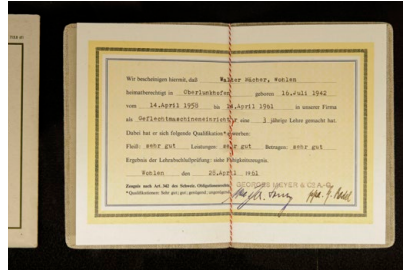 Wir bescheinigen hiermit, daß Walter Mächer, Wohlen
heimatberechtigt in Oberlunkhofen geboren 16.Juli 1942
vom 14.April 1958 bis 14.April 1961 in unserer Firma
als Geflechtmaschineneinricht eine 3 jährige Lehre gemacht hat.
Dabei hat er sich folgende Qualifikation* erworben:
Fleiß: sehr gut Leistungen: sehr gut Betragen: sehr gut
Ergebnis der Lehrabschlußprüfung: siehe Fähigkeitszeugnis.
Wohlen den 20.April 1961
Zeugnis nach Art. 342 des Schweiz. Obligationenrechts
GEORGES MEYER & CO A.-G.
*Qualifikationen: Sehr gut; gut; genügend; ungenügend
ppa.